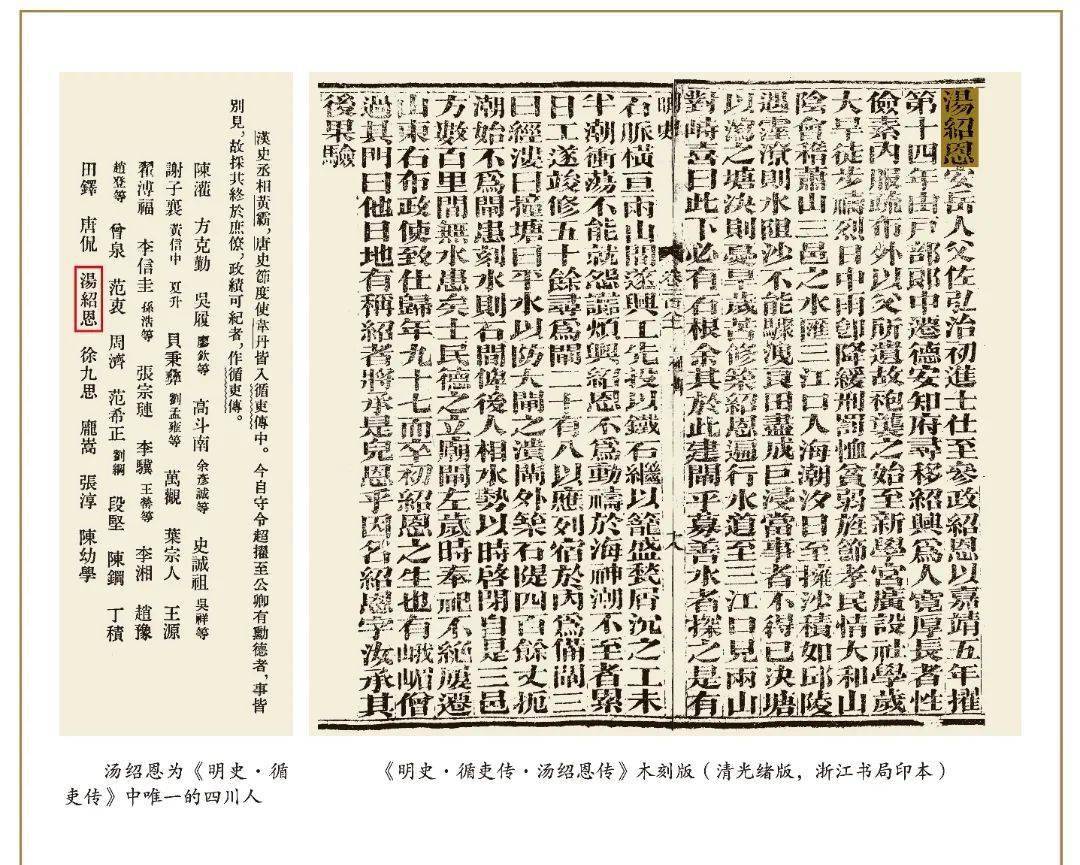 漢史丞相黃霸，唐史節度使韋丹皆入循吏傳中。今自守令超擢至公卿有勳德者，事皆
別見，故採其終於庶僚，政績可紀者，作循吏傳。
陳灌 方克勤 吳履 廖欽等 高斗南 余彥誠等 史誠祖 吳祥等
謝子襄 黃信中 夏升 貝秉彝 劉孟雍等 萬觀 葉宗人 王源
翟溥福 李信圭 孫浩等 張宗璉 李驥 王瑩等 李湘 趙豫
趙登等 曾泉 范衷 周濟 范希正 劉綱 段堅 陳鋼 丁積
田鐸 唐侃 湯紹恩 徐九思 龐嵩 張淳 陳幼學
湯紹恩安岳人父佐弘治初進士仕至參政紹恩以嘉靖五年擢
第十四年由戶部郎中遷德安知府尋移紹興爲人寬厚長者性
儉素內服疏布外以父所遺故袍襲之始至新學宮廣設社學歲
大旱徒步禱烈日中雨卽降緩刑罰恤貧弱旌節孝民情大和山
陰會稽蕭山三邑之水匯三江口入海潮汐日至擁沙積如邱陵
遇霪潦則水阻沙不能驟洩良田盡成巨浸當事者不得已決塘
以瀉之塘決則憂旱歲苦修築紹恩遍行水道至三江口見兩山
對峙喜曰此下必有石根余其於此建閘乎募善水者探之是有
明史
十八
石脈橫亘兩山間遂興工先投以鐵石繼以籠盛甃屑沉之工未
半潮衝蕩不能就怨讟煩興紹恩不爲動禱於海神潮不至者累
日工遂竣修五十餘尋爲閘二十有八以應列宿於內爲備閘三
曰經漊曰撞塘曰平水以防大閘之潰閘外築石隄四百餘丈扼
潮始不爲閘患刻水則石間俾後人相水勢以時啓閉自是三邑
方數百里間無水患矣士民德之立廟閘左歲時奉祀不絕屢遷
山東右布政使致仕歸年九十七而卒初紹恩之生也有峨嵋僧
過其門曰他日地有稱紹者將承是兒恩乎因名紹恩字汝承其
後果驗
汤绍恩为《明史·循
吏传》中唯一的四川人
《明史·循吏传·汤绍恩传》木刻版（清光绪版，浙江书局印本）